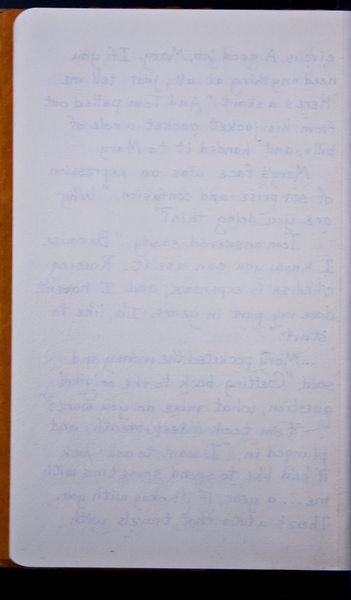 circus. A good job, Mary. If you
need anything at all, just tell me.
Here's a start." And Tom pulled out
from his jacket pocket a role of
bills, and handed it to Mary.
Mary's face was an expression
of surprise and confusion. "Why
are you doing this?"
Tom answered easily, "Because
I know you can use it. Raising
children is expensive, and I haven't
done my part in years. I'd like to
start."
Mary pocketed the money and
said "Getting back to the original
question, what more do you want?"
Tom took a deep breath, and
plunged in. "I want to ask Jack
if he'd like to spend some time with
me.... a year, if it's okay with you.
There's a tutor that travels with